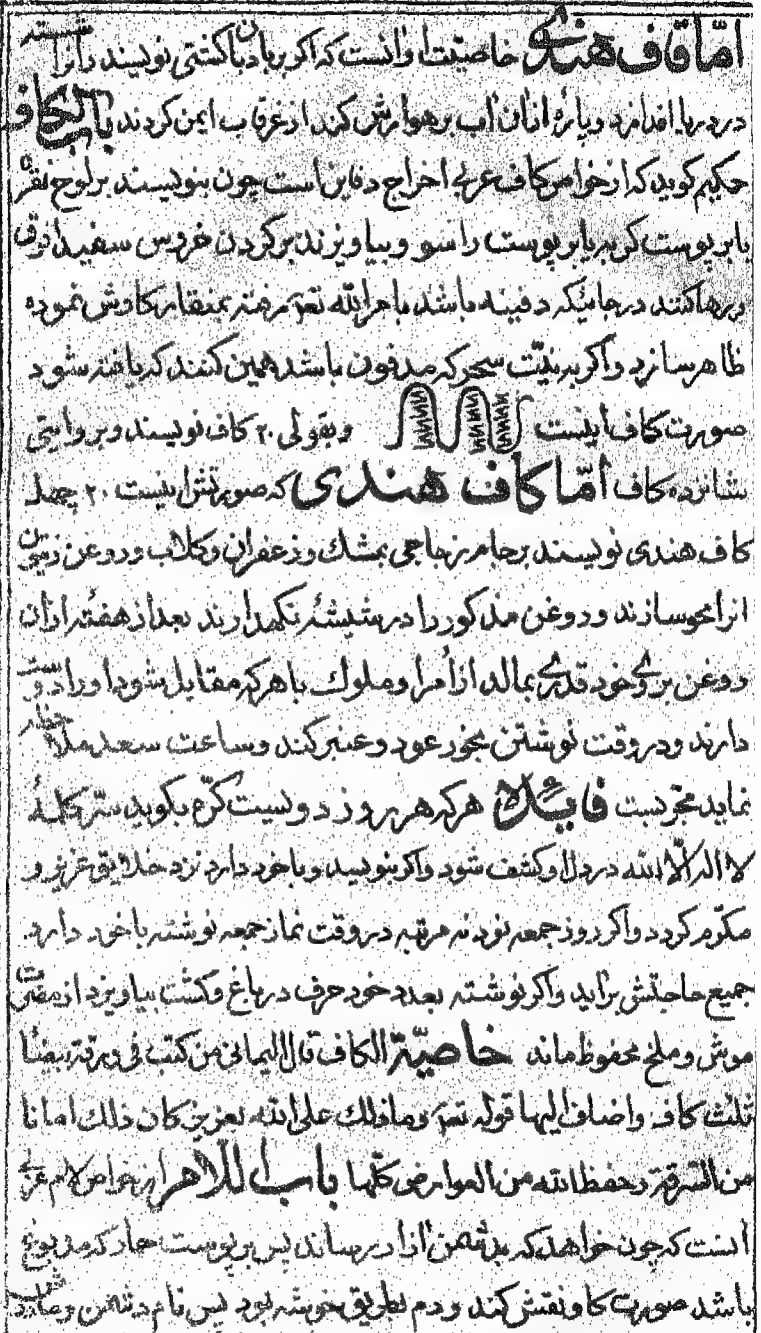 اما قاف هندی خاصیتش آنست که اگر بر بادبان کشتی نویسند و آنرا
در دریا اندازد و پارهٔ از آن آب بر هوا رش کند از غرقاب ایمن کردند باب الکاف
حکیم کوید که از خواص کاف عربی اخراج دفاین است چون بنویسند بر لوح نقره
یا بر پوست کربه یا بر پوست راسو و بیاویزند بر کردن خروس سفید افرق
و رها کنند در جائیکه دفینه باشد بامر الله تعالی رفته بمنقار کاوش نموده
ظاهر سازد و اکر به نیّت سحر که مدفون باشد همین کنند که یافته شود
صورت کاف اینست و بقولی ۲۰ کاف نویسند و بروایتی
شانزده کاف اما کاف هندی که صورتش اینست ۲۰ چهل
کاف هندی نویسند بر جام زجاجی بمشك و زعفران و کلاب و روغن زیتون
انرا محو سازند و روغن مذکور را در شیشه نکهدارند بعد از هفته از آن
روغن بر روی خود قدری بمالد از امرا و ملوك با هر که مقابل شود او را دوست
دارند و در وقت نوشتن بخور عود و عنبر کند و ساعت سعد ملاحظه
نماید مجرّبست فایده هر که هر روز دویست کرّه بکوید سرّ کلمهٔ
لا اله الّا الله در دل او کشف شود و اکر بنویسد و با خود دارد نزد خلایق عزیز و
مکرّم کردد و اکر روز جمعه نود نه مرتبه در وقت نماز جمعه نوشته با خود دارد
جمیع حاجتش بر آید و اکر نوشته بعدد خود حرف در باغ و کشت بیاویزد از مضرت
موش و ملخ محفوظ ماند خاصیّة الکاف قال الیمانی من کتب فی ورقة بیضا
ثلث کاف و اضاف الیها قوله تعالی و ما ذلك علی الله بعزیز کان ذلك امانا
من السرقة و حفظ الله من العوارض کلّها باب اللّام از خواص لام عربی
آنست که چون خواهد که بدشمن آزار رساند پس بر پوست حمار که مدبوغ
باشد صورت کاو نقش کند و دم بطریق خوشه بود پس نام دشمن و مادر